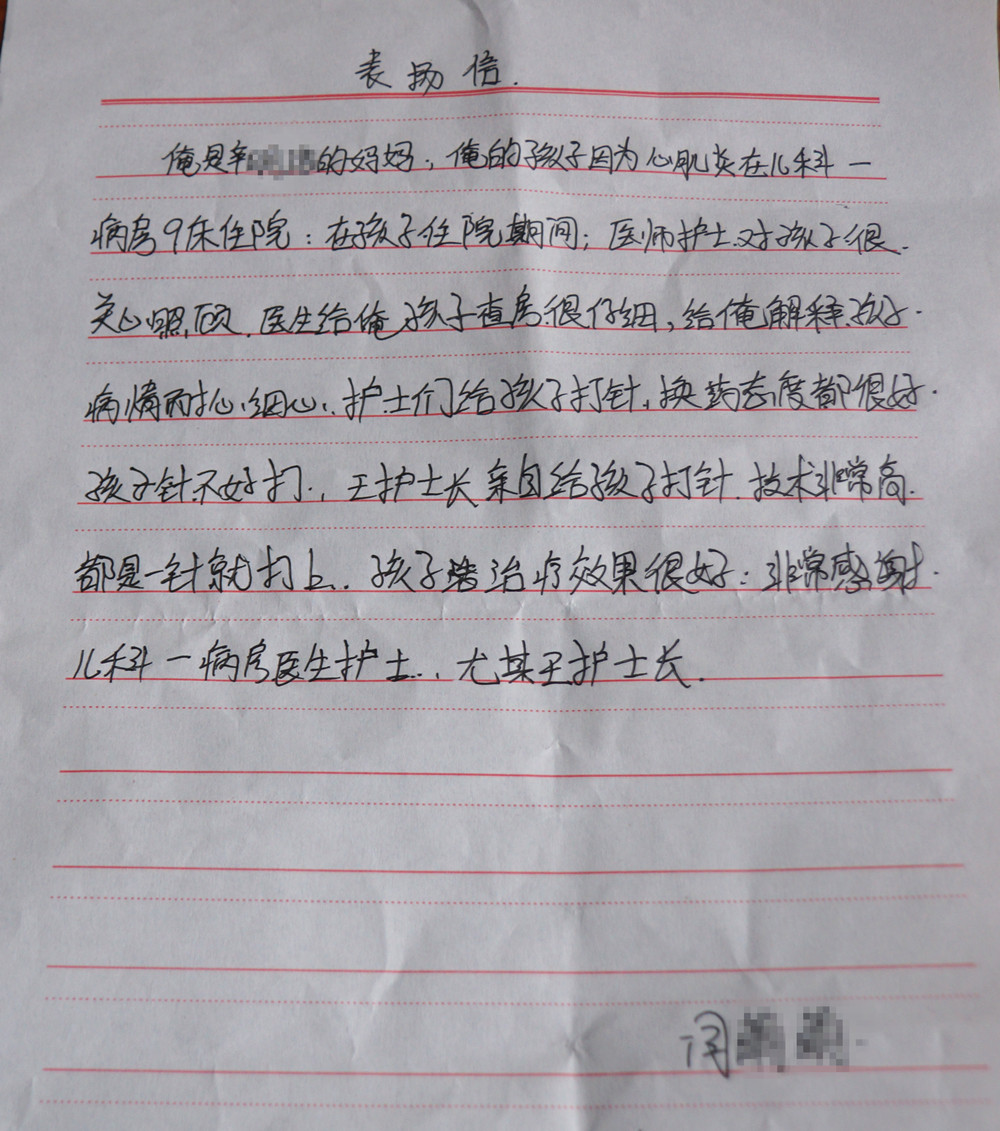 表扬信.
俺是辛的妈妈,俺的孩子因为心肌炎在儿科一
病房9床住院:在孩子住院期间;医师护士对孩子很
关心照顾.医生给俺孩子查房很仔细,给俺解释孩子
病情耐心细心.护士们给孩子打针,换药态度都很好.
孩子针不好打.,王护士长亲自给孩子打针.技术非常高.
都是一针就打上.孩子治疗效果很好:非常感谢.
儿科一病房医生护士.,尤其王护士长.
闫